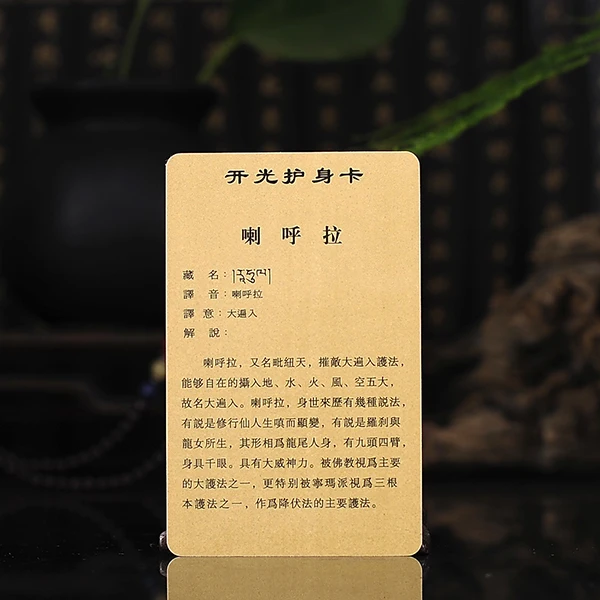 开光护身卡
喇呼拉
藏 名：
譯 音：喇呼拉
譯 意：大遍入
解 說：
喇呼拉，又名毗紐天，摧敵大遍入護法，
能够自在的攝入地、水、火、風、空五大，
故名大遍入。喇呼拉，身世來歷有幾種説法，
有説是修行仙人生嗔而顯變，有説是羅刹與
龍女所生，其形相爲龍尾人身，有九頭四臂，
身具千眼。具有大威神力。被佛教視爲主要
的大護法之一，更特别被寧瑪派視爲三根
本護法之一，作爲降伏法的主要護法。